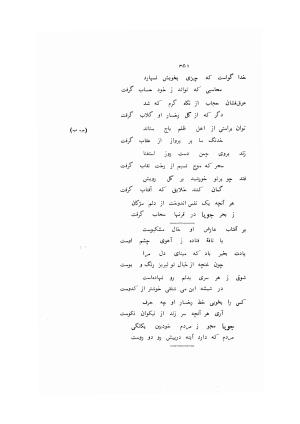 ۳۵۱
خدا گواست که چیزی بخویش نسپارد
محاسبی که تواند ز خود حساب گرفت
عرق‌فشان حجاب از نگاه گرم که شد
دگر که از گل رخسار او گلاب گرفت
توان براستی از اهل ظلم باج ستاند
خدنگ ما پر پرواز از عقاب گرفت
زند بروی چمن دست رد استغنا
سحر که موج نسیم از رخت نقاب گرفت
فتد چو پرتو خورشید بر گل رویش
گمان کنند خلایق که آفتاب گرفت
هر آنچه یک نفس اندوخت از دلم مژگان
ز بحر جویا در قرنها سحاب گرفت
بر آفتاب عارض او خال مشکبوست
یا نافهٔ فتاده ز آهوی چشم اوست
یادت بخیر باد که مینای دل مرا
چون غنچه از خیال تو لبریز رنگ و بوست
شوق ز هر سری بدلم رو نهاده‌است
در شیشه این می خوشتر از کدوست
کسی را بخوبی خط رخسار او چه حرف
آری هر آنچه سر زند از نیکوان نکوست
جویا مجو ز مردم خودبین یگانگی
مردم که دارد آینه درپیش رو دو روست